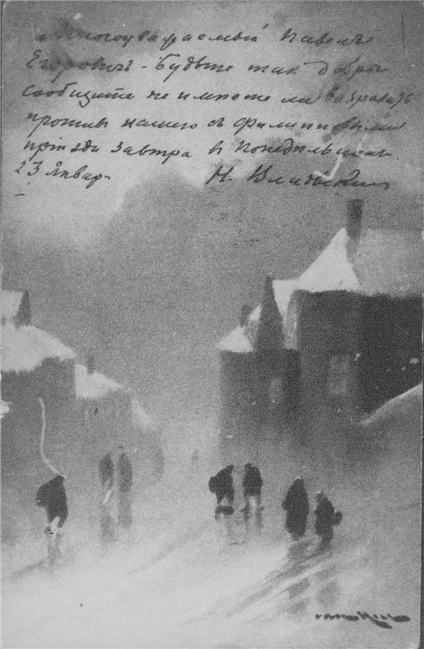 Многоуважаемый Павелъ
Егоровичъ - Будьте такъ добры
сообщите не имѣете ли возражать
противъ нашего съ Филипповыми
пріѣзда завтра въ Понедѣльникъ
23 Январ.
Н.